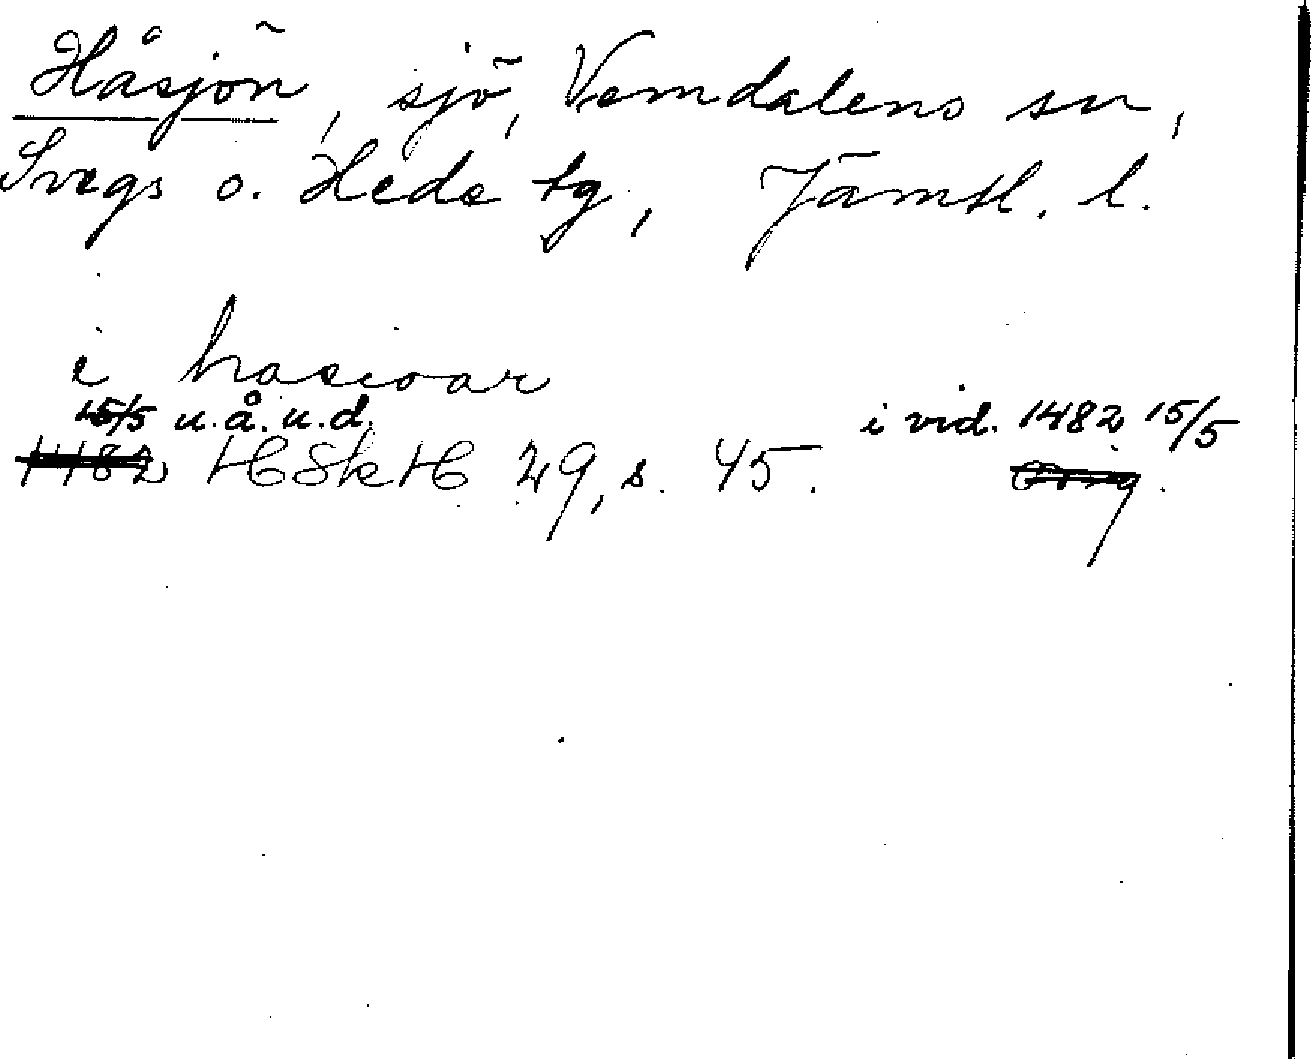 Håsjön, sjö, Vemdalens sn,
Svegs o. Hede tg, Jämtl. l.
i hasioar
15/5 u.å.u.d. i vid. 1482 15/5
1482 HSkH 29, s. 45. Orig.